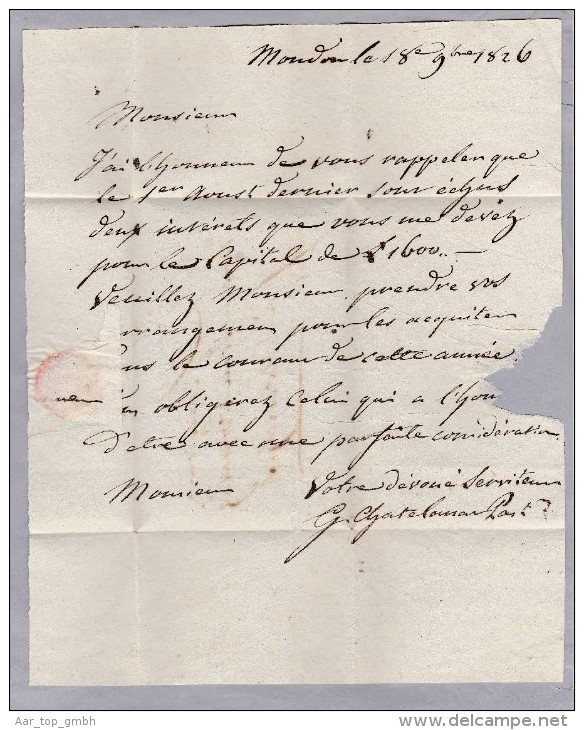 Moudon le 18e 9bre 1826
Monsieur
J'ai l'honneur de vous rappeler que
le 1er Aoust dernier sont échus
deux intérets que vous me devéz
pour le Capital de £ 1600.-
Veuillez Monsieur, prendre vos
rrangemens pour les acquiter
ns le courant de cette année
en obligerez Celui qui a l'hon
neur
D'etre avec une parfaite considération
Monsieur
Votre dévoué Serviteur
G. Chatelanat Past.
Aar_top_gmbh
delcampe.net